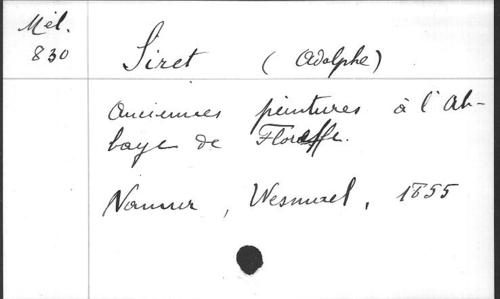 Mél.
830
Siret (Adolphe)
Anciennes peintures à l'Ab-
baye de Floreffe.
Namur, Wesmael, 1855